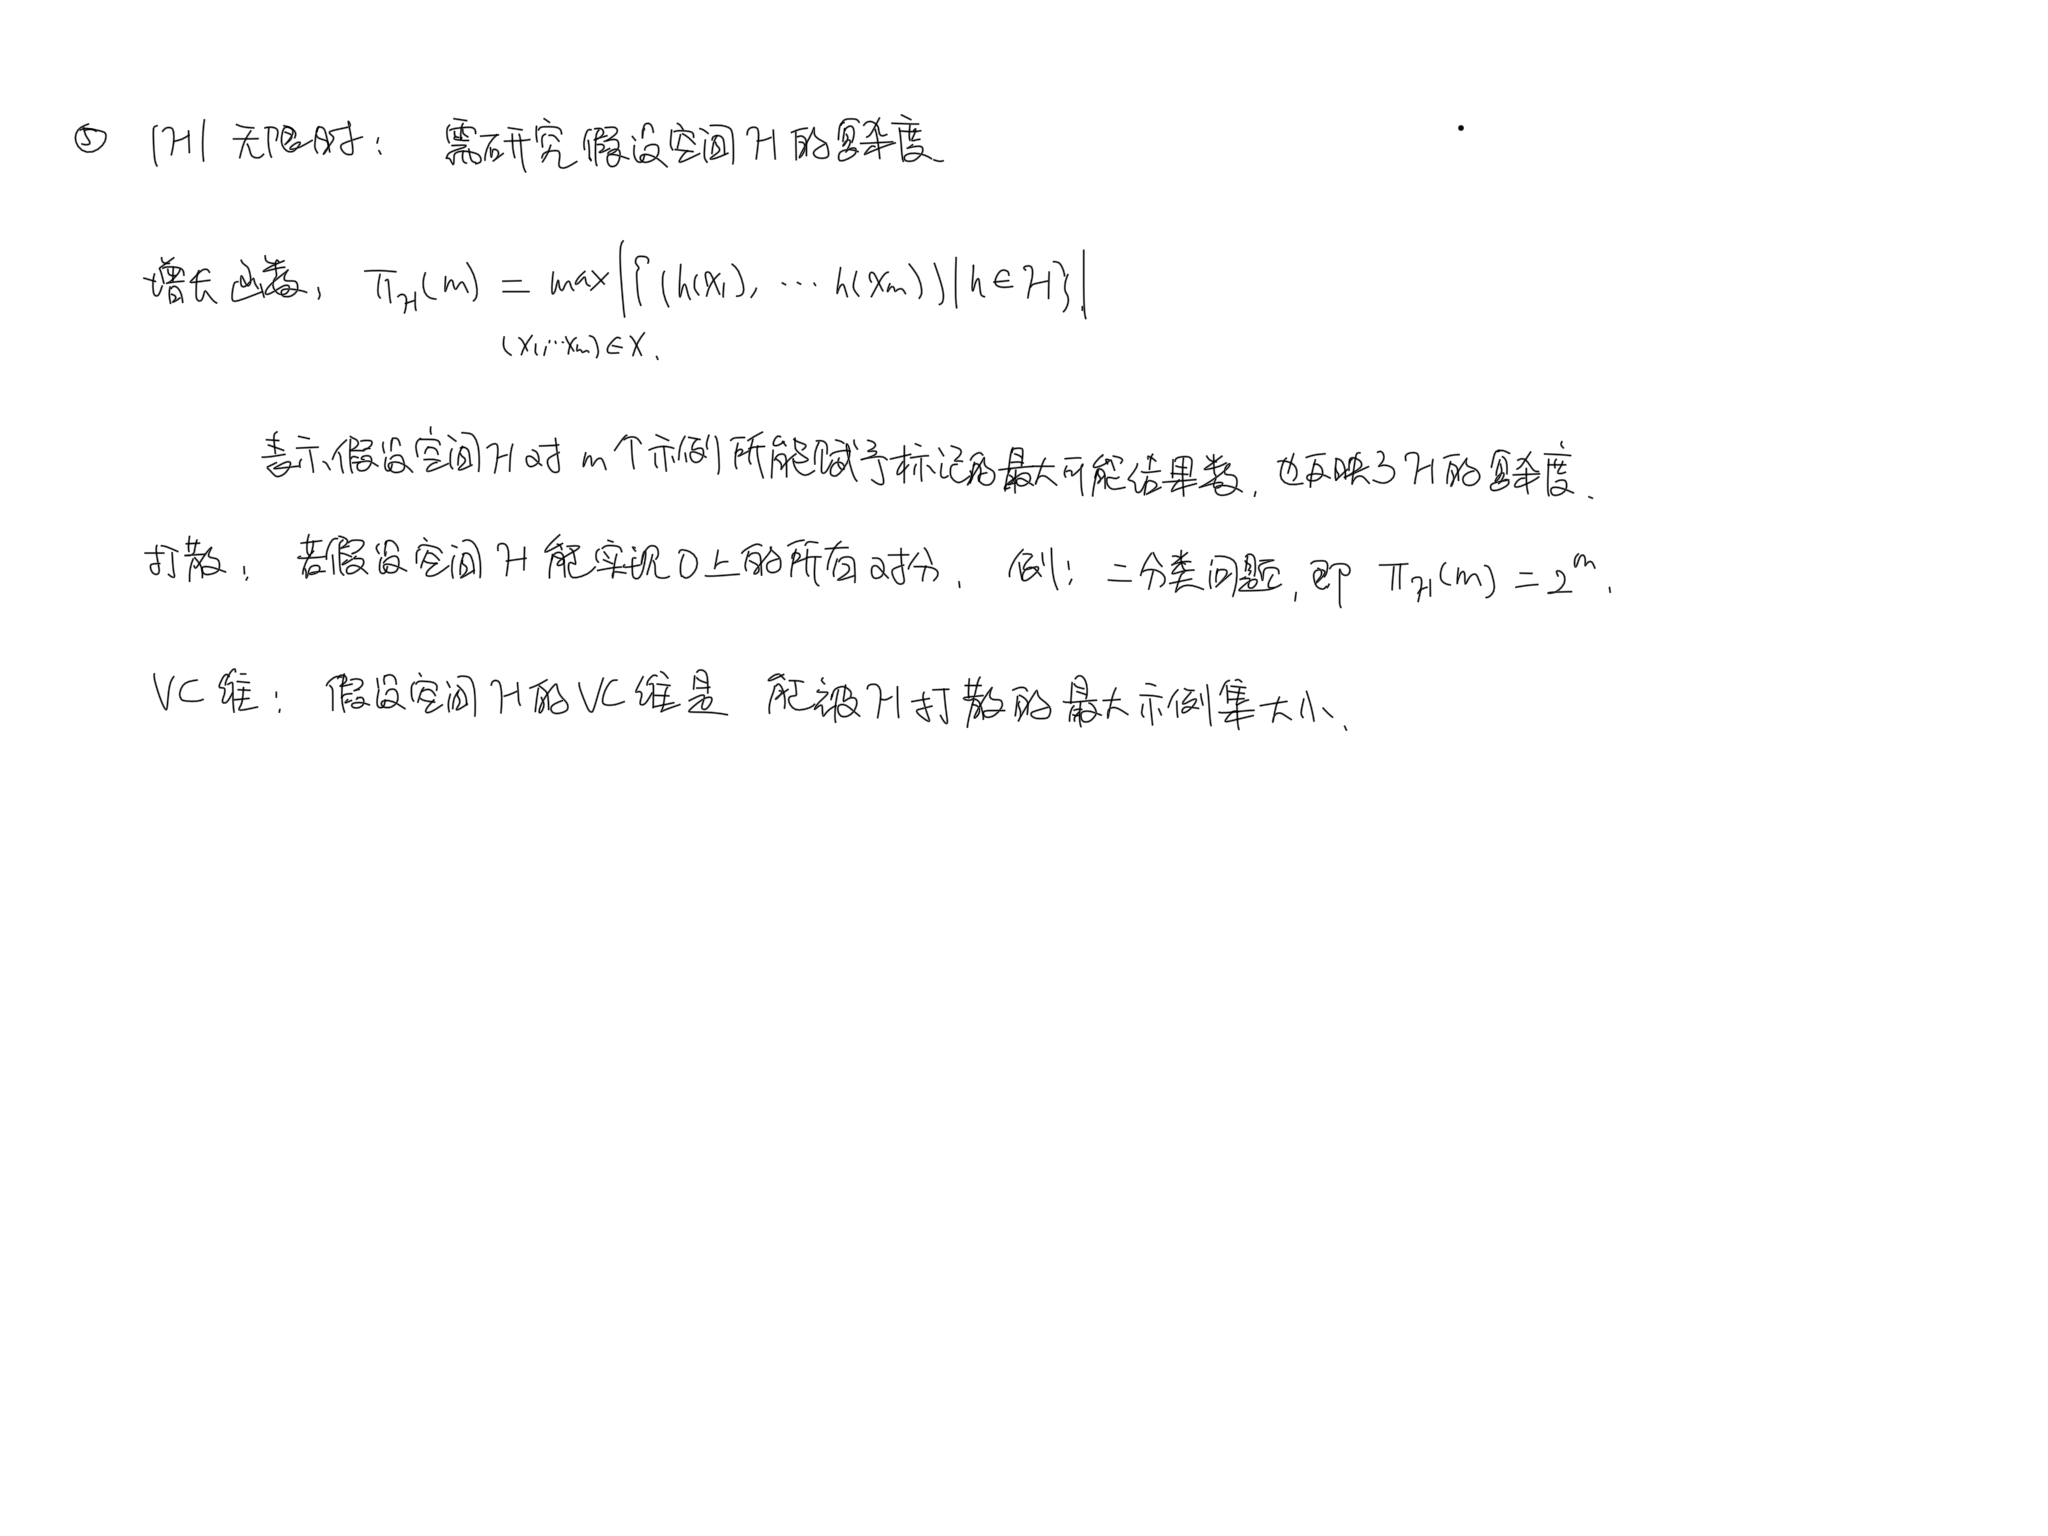 ⑤ |H| 无限时: 需研究假设空间H的复杂度
增长函数, π_H(m) = max|{(h(x₁), … h(xₘ))|h∈H}|
(x₁,…xₘ)∈X.
表示假设空间H对m个示例所能赋予标记的最大可能结果数, 也反映了H的复杂度.
打散: 若假设空间H能实现D上的所有对分. 例: 二分类问题, 即 π_H(m) = 2ᵐ.
VC维: 假设空间H的VC维是 能被H打散的最大示例集大小.